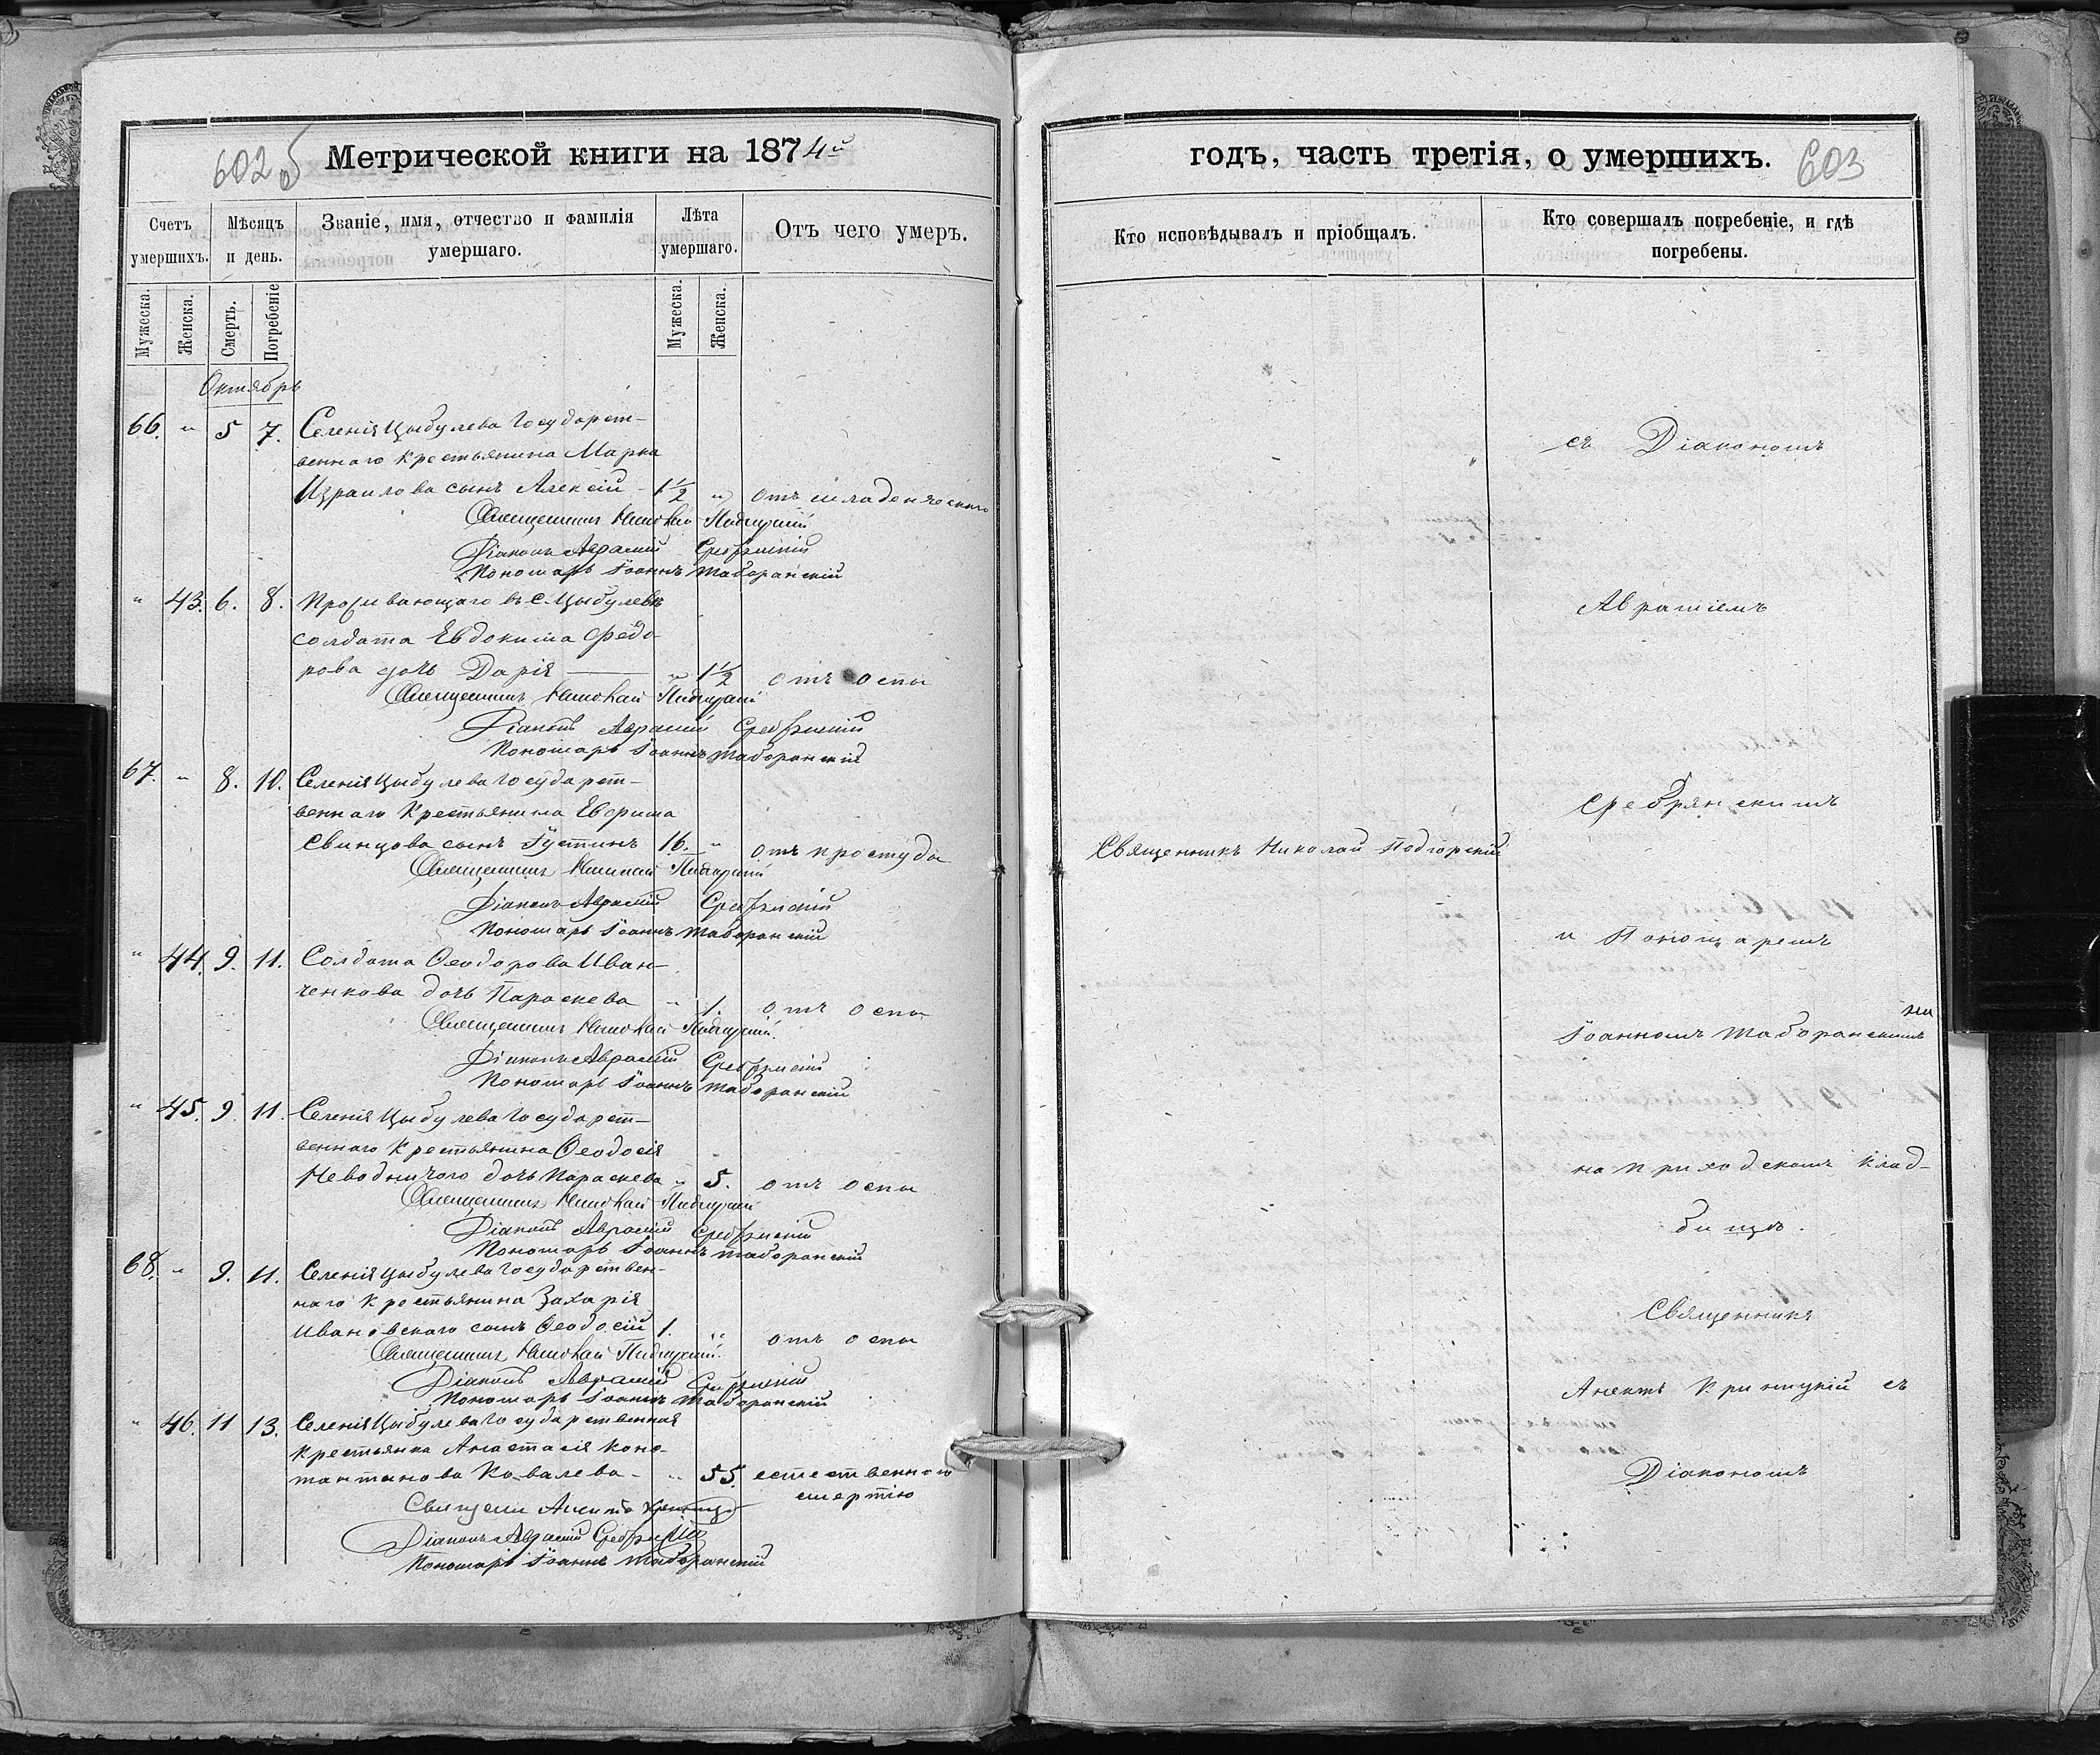 602 об
Метрической книги на 1874й
Счетъ умершихъ.
Мѣсяцъ и день.
Званіе, имя, отчество и фамилія умершаго.
Лѣта умершаго.
Отъ чего умеръ.
Мужеска.
Женска.
Смерть.
Погребеніе
Мужеска.
Женска.
Октябрь
66. " 5 7. Селенія Цыбулева Государст-
веннаго Крестьянина Марка
Израилова сынъ Алексій - 1½ " отъ младенческаго
Священникъ Николай Подгурскій
Діаконъ Аврамій Сребрянскій
Пономарь Іоаннъ Таборанскій
" 43. 6. 8. Проживающаго въ С. Цыбулевѣ
солдата Евдокима Федо-
рова дочь Дарія " 1½ отъ оспы
Священникъ Николай Подгурскій
Діаконъ Аврамій Сребрянскій
Пономарь Іоаннъ Таборанскій
67. " 8. 10. Селенія Цыбулева Государст-
веннаго Крестьянина Евфима
Свинцова сынъ Іустинъ 16. " отъ простуды
Священникъ Николай Подгурскій
Діаконъ Аврамій Сребрянскій
Пономарь Іоаннъ Таборанскій
" 44. 9. 11. Солдата Феодорова Иван-
ченкова дочь Параскева " 1. отъ оспы
Священникъ Николай Подгурскій
Діаконъ Аврамій Сребрянскій
Пономарь Іоаннъ Таборанскій
" 45. 9. 11. Селенія Цыбулева Государст-
веннаго Крестьянина Феодосія
Неводничого дочь Параскева " 5. отъ оспы
Священникъ Николай Подгурскій
Діаконъ Аврамій Сребрянскій
Пономарь Іоаннъ Таборанскій
68. " 9. 11. Селенія Цыбулева Государствен-
наго Крестьянина Захарія
Ивановскаго сынъ Феодосій 1. " отъ оспы
Священникъ Николай Подгурскій
Діаконъ Аврамій Сребрянскій
Пономарь Іоаннъ Таборанскій
" 46. 11 13. Селенія Цыбулева Государственная
крестьянка Анастасія Конс-
тантинова Ковалева - " 55. естественною
смертію
Священ Аненъ
Діаконъ Аврамій Сребрянскій
Пономарь Іоаннъ Таборанскій
годъ, часть третія, о умершихъ.
603
Кто исповѣдывалъ и пріобщалъ.
Кто совершалъ погребеніе, и гдѣ погребены.
съ Діакономъ
Авраміемъ
Сребрянскимъ
Священникъ Николай Подгорскій
и Пономаремъ
Іоанномъ Таборанскимъ
на
на приходскомъ клад-
бищѣ.
Священникъ
Криницкій съ
Діакономъ